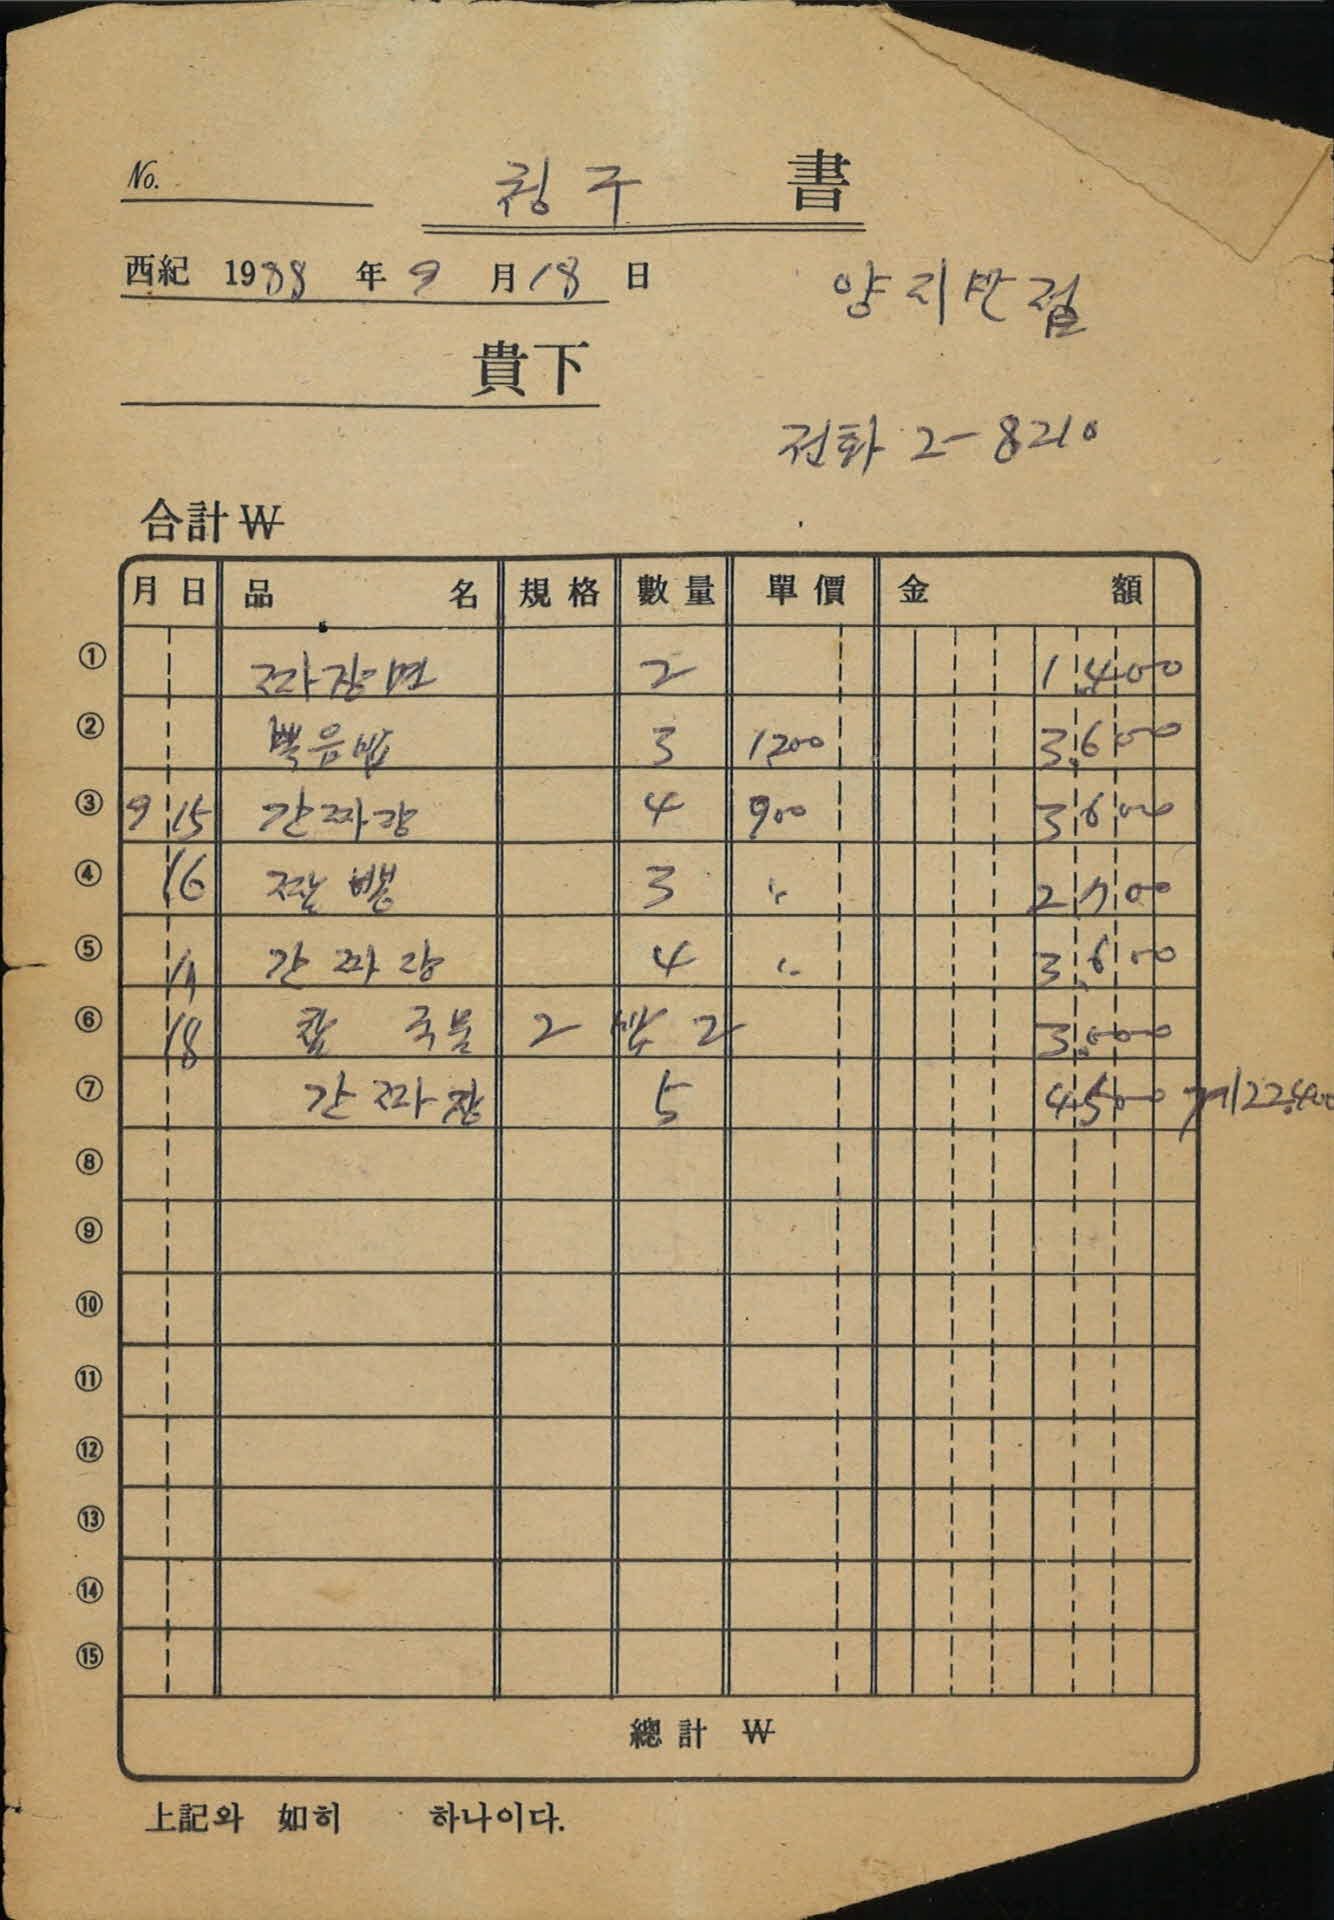 No.
청구 書
西紀 1988 年 9 月 18 日
양지반점
貴下
전화 2-8210
合計 ₩
月 日 品 名 規 格 數 量 單 價 金 額
① 짜장면 2 1,400
② 뽁음밥 3 1200 3,600
③ 9 15 간짜장 4 900 3600
④ 16 짬뽕 3 〃 2700
⑤ 17 간짜장 4 〃 3,600
⑥ 18 국물 2 밥 2 3,000
⑦ 간짜장 5 4,500 계 22,400
⑧
⑨
⑩
⑪
⑫
⑬
⑭
⑮
總 計 ₩
上記와 如히 하나이다.